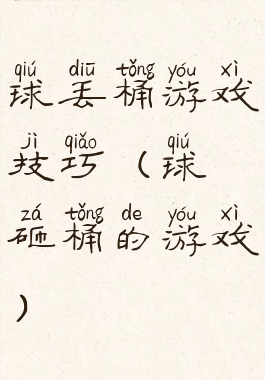 qiú diū tǒng yóu xì
球丢桶游戏
jì qiǎo qiú
技巧（球
zá tǒng de yóu xì
砸桶的游戏
）